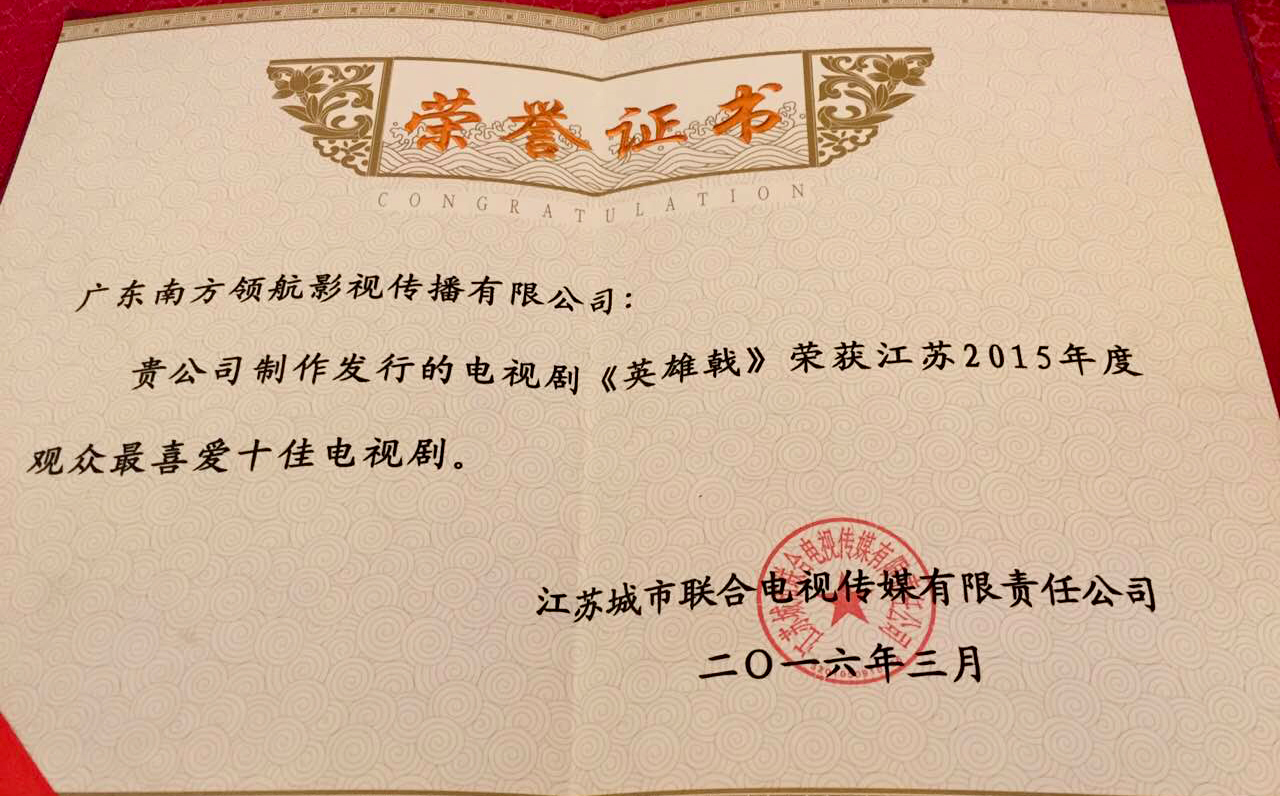 荣誉证书
CONGRATULATION
广东南方领航影视传播有限公司：
贵公司制作发行的电视剧《英雄戟》荣获江苏2015年度
观众最喜爱十佳电视剧。
江苏城市联合电视传媒有限责任公司
二〇一六年三月
江苏城市联合电视传媒有限责任公司